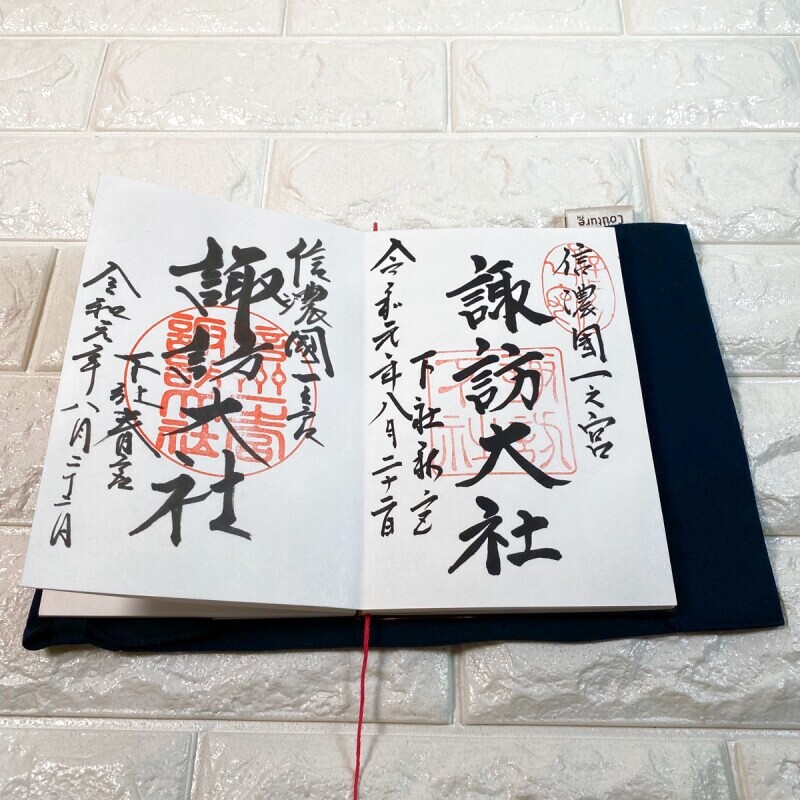 信濃國一之宮
諏訪大社
下社秋宮
令和元年八月二十二日
信濃國一之宮
諏訪大社
下社春宮
令和元年八月二十二日
Couture